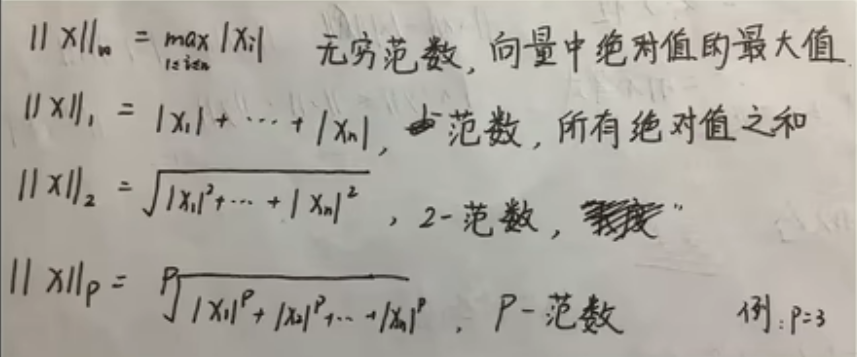 ||X||∞ = max 1≤i≤n |Xi| 无穷范数, 向量中绝对值的最大值
||X||₁ = |X₁| + ⋯ + |Xn|, 范数, 所有绝对值之和
||X||₂ = √(|X₁|² + ⋯ + |Xn|²), 2-范数,
||X||p = ᵖ√(|X₁|ᵖ + |X₂|ᵖ + ⋯ + |Xn|ᵖ), P-范数 例:P=3